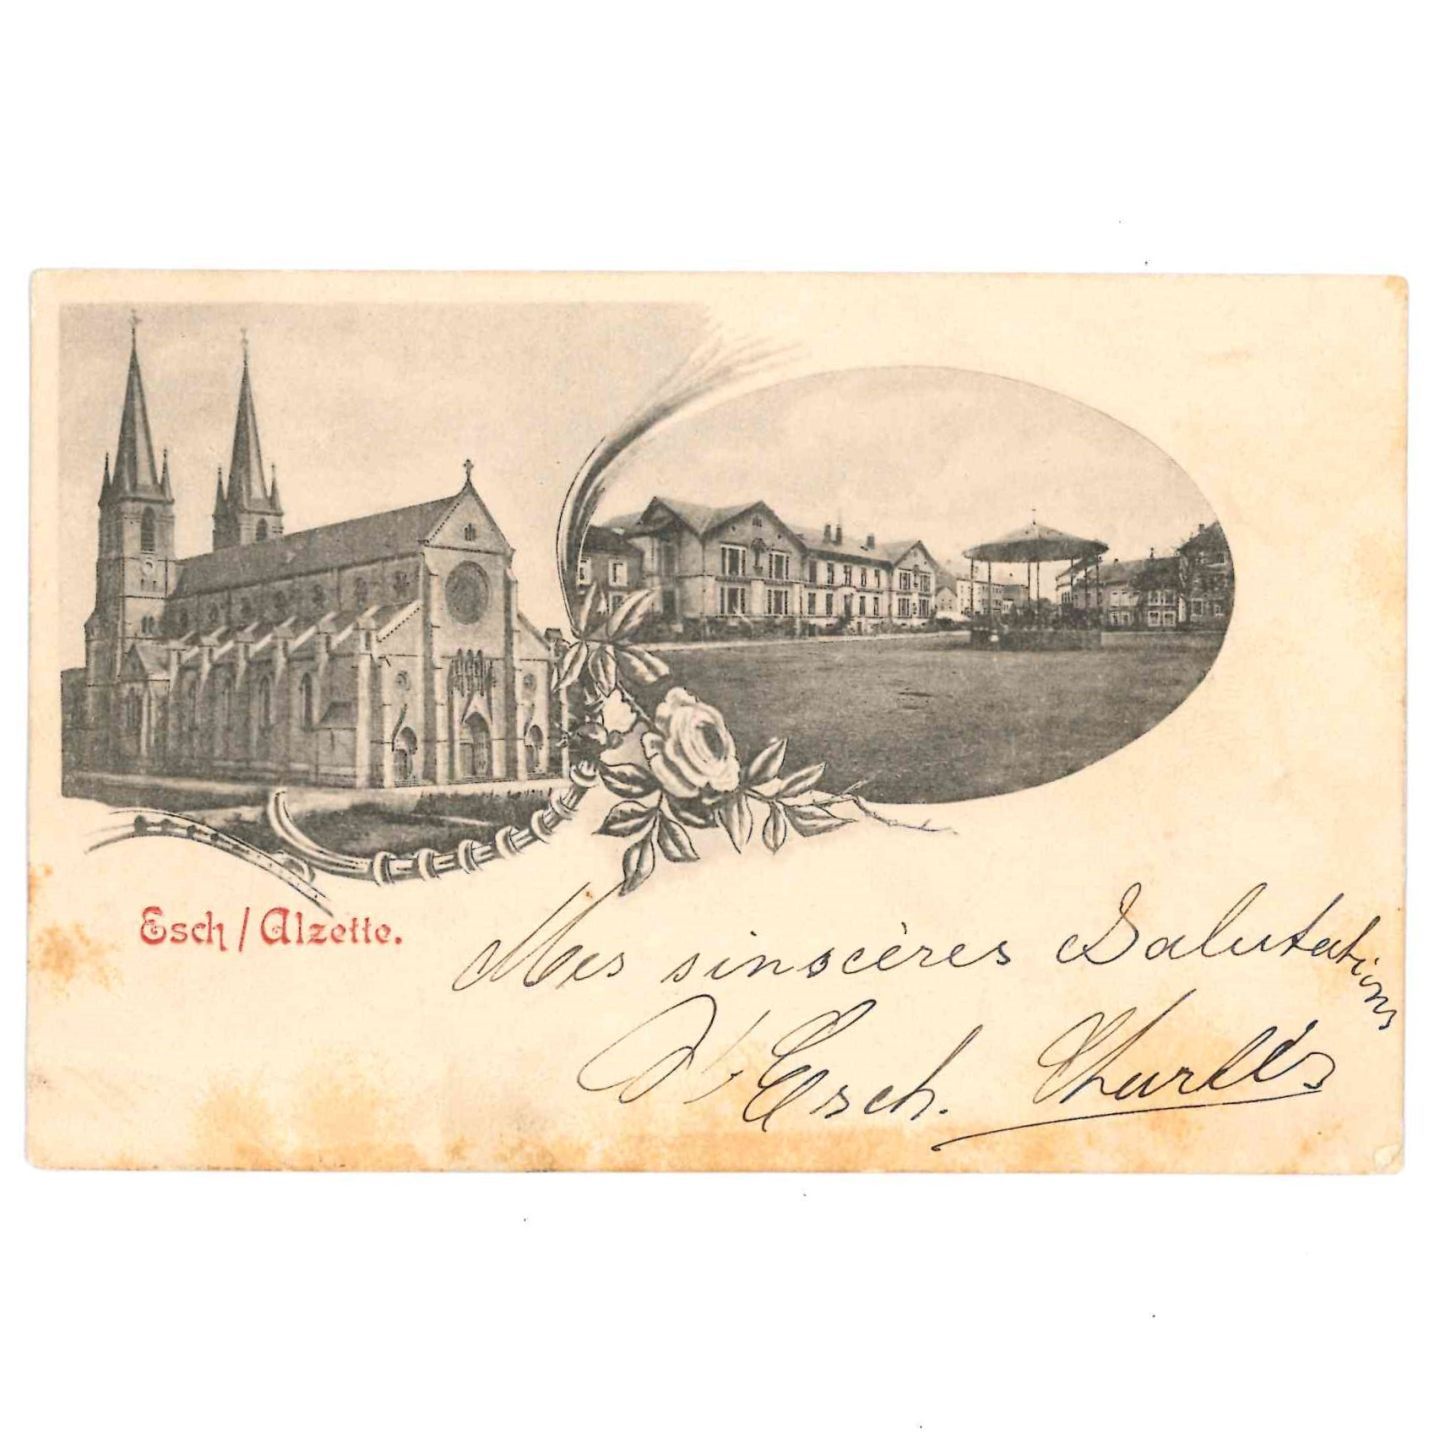 Esch / Alzette.
Mes sinscères Salutations
d'Esch. Charles